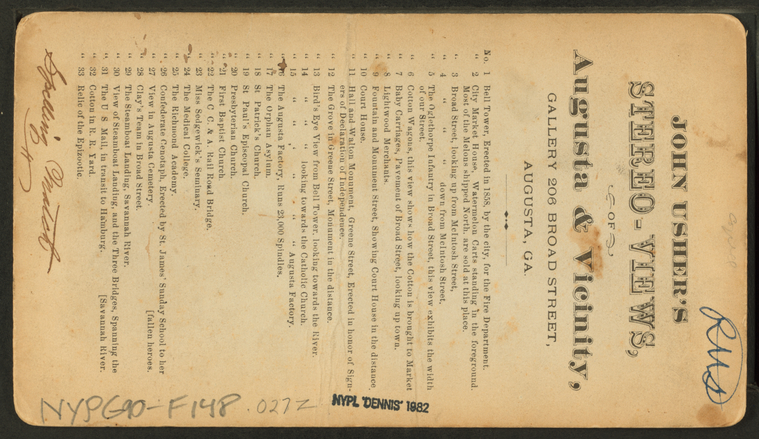 JOHN USHER'S
STEREO-VIEWS,
OF
Augusta & Vicinity,
GALLERY 206 BROAD STREET,
AUGUSTA, GA.
No. 1 Bell Tower, Erected in 1858, by the city, for the Fire Department.
" 2 City Market House. Watermelon Carts standing in the foreground.
Most of the Melons shipped North, are sold at this place.
" 3 Broad Street, looking up from McIntosh Street,
" 4 " " " down from McIntosh Street,
" 5 The Oglethorpe Infantry in Broad Street, this view exhibits the width
of our Street.
" 6 Cotton Wagons, this view shows how the Cotton is brought to Market
" 7 Baby Carriages, Pavement of Broad Street, looking up town.
" 8 Lightwood Merchants.
" 9 Fountain and Monument Street, Showing Court House in the distance
" 10 Court House,
" 11 Hall and Walton Monument, Greene Street, Erected in honor of Sign-
ers of Declaration of Independence.
" 12 The Grove in Greene Street, Monument in the distance.
" 13 Bird's Eye View from Bell Tower, looking towards the River.
" 14 " " " " looking towards the Catholic Church.
" 15 " " " " " Augusta Factory.
" 16 The Augusta Factory, Runs 23,000 Spindles,
" 17 The Orphan Asylum.
" 18 St. Patrick's Church.
" 19 St Paul's Episcopal Church.
" 20 Presbyterian Church.
" 21 First Baptist Church.
" 22 The C. C. & A. Rail Road Bridge,
" 23 Miss Sedgewick's Seminary.
" 24 The Medical College.
" 25 The Richmond Academy.
" 26 Confederate Cenotaph, Erected by St. James' Sunday School to her
[fallen heroes.
" 27 View in Augusta Cemetery
" 28 Clay's Team in Broad Street.
" 29 The Steamboat Landing, Savannah River.
" 30 View of Steamboat Landing, and the Three Bridges, Spanning the
[Savannah River.
" 31 The U S Mail, in transit to Hamburg.
" 32 Cotton in R. R. Yard
" 33 Relic of the Epizootic.
RMD
NYPG90-F148 .0272
NYPL 'DENNIS' 1982